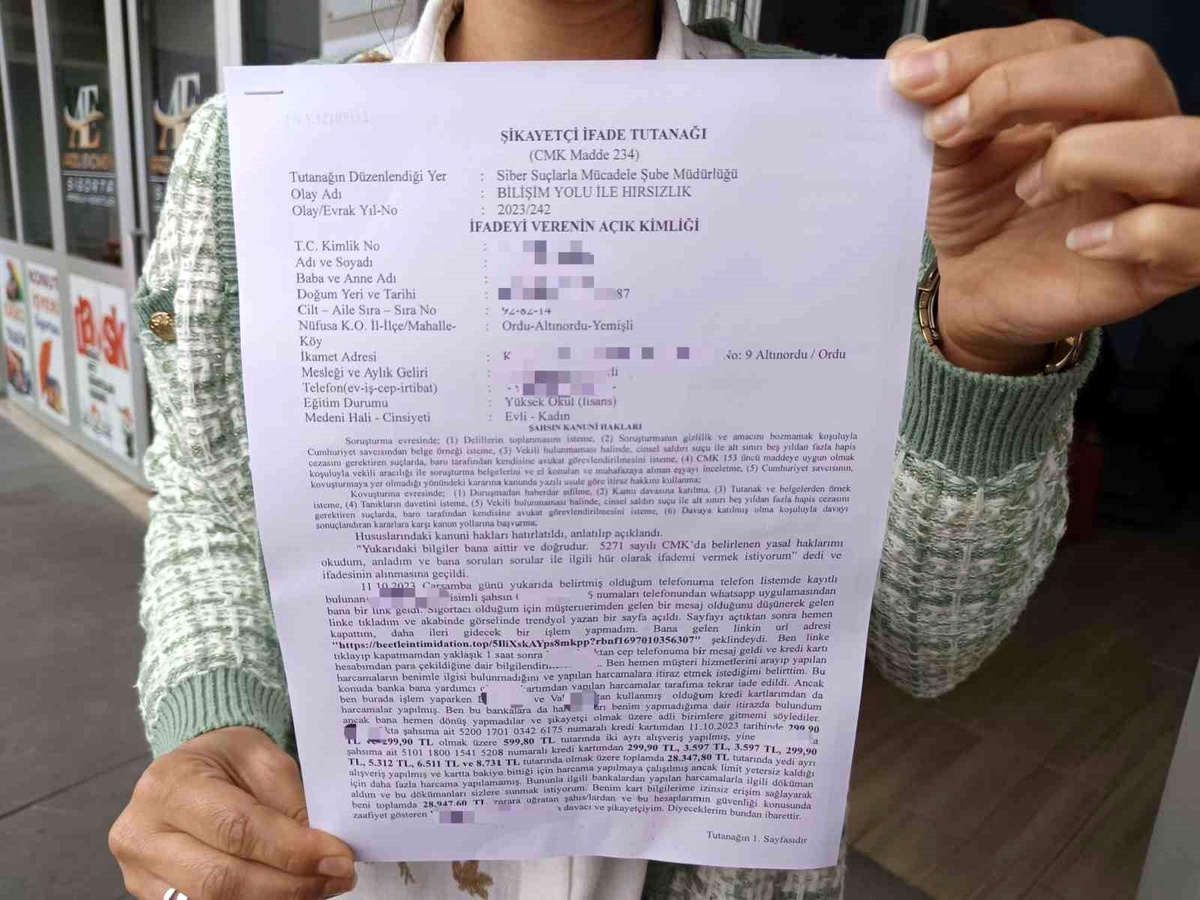 ŞİKAYETÇİ İFADE TUTANAĞI
(CMK Madde 234)
Tutanağın Düzenlendiği Yer : Siber Suçlarla Mücadele Şube Müdürlüğü
Olay Adı : BİLİŞİM YOLU İLE HIRSIZLIK
Olay/Evrak Yıl-No : 2023/242
İFADEYİ VERENİN AÇIK KİMLİĞİ
T.C. Kimlik No :
Adı ve Soyadı :
Baba ve Anne Adı :
Doğum Yeri ve Tarihi : 87
Cilt – Aile Sıra – Sıra No :
Nüfusa K.O. İl-İlçe/Mahalle- : Ordu-Altınordu-Yemişli
Köy
İkamet Adresi : K No: 9 Altınordu / Ordu
Mesleği ve Aylık Geliri :
Telefon(ev-iş-cep-irtibat) :
Eğitim Durumu : Yüksek Okul (lisans)
Medeni Hali - Cinsiyeti : Evli - Kadın
ŞAHSIN KANUNİ HAKLARI
Soruşturma evresinde; (1) Delillerin toplanmasını isteme, (2) Soruşturmanın gizlilik ve amacını bozmamak koşuluyla
Cumhuriyet savcısından belge örneği isteme, (3) Vekili bulunmaması halinde, cinsel saldırı suçu ile alt sınırı beş yıldan fazla hapis
cezasını gerektiren suçlarda, baro tarafından kendisine avukat görevlendirilmesini isteme, (4) CMK 153 üncü maddeye uygun olmak
koşuluyla vekili aracılığı ile soruşturma belgelerini ve el konulan ve muhafazaya alınan eşyayı inceletme, (5) Cumhuriyet savcısının,
kovuşturmaya yer olmadığı yönündeki kararına kanunda yazılı usule göre itiraz hakkını kullanma;
Kovuşturma evresinde; (1) Duruşmadan haberdar edilme, (2) Kamu davasına katılma, (3) Tutanak ve belgelerden örnek
isteme, (4) Tanıkların davetini isteme, (5) Vekili bulunmaması halinde, cinsel saldırı suçu ile alt sınırı beş yıldan fazla hapis cezasını
gerektiren suçlarda, baro tarafından kendisine avukat görevlendirilmesini isteme, (6) Davaya katılmış olma koşuluyla davayı
sonuçlandıran kararlara karşı kanun yollarına başvurma;
Hususlarındaki kanuni hakları hatırlatıldı, anlatılıp açıklandı.
"Yukarıdaki bilgiler bana aittir ve doğrudur. 5271 sayılı CMK'da belirlenen yasal haklarımı
okudum, anladım ve bana sorulan sorular ile ilgili hür olarak ifademi vermek istiyorum" dedi ve
ifadesinin alınmasına geçildi.
11.10.2023 Çarşamba günü yukarıda belirtmiş olduğum telefonuma telefon listemde kayıtlı
bulunan isimli şahsın ( 5 numaları telefonundan whatsapp uygulamasından
bana bir link geldi. Sigortacı olduğum için müşterimden gelen bir mesaj olduğunu düşünerek gelen
linke tıkladım ve akabinde görselinde trendyol yazan bir sayfa açıldı. Sayfayı açtıktan sonra hemen
kapattım, daha ileri gidecek bir işlem yapmadım. Bana gelen linkin url adresi
"https://beetleintimidation.top/5IliXskAYps8mkpp?rbnf1697010356307" şeklindeydi. Ben linke
tıklayıp kapatmamdan yaklaşık 1 saat sonra ktan cep telefonuma bir mesaj geldi ve kredi kartı
hesabımdan para çekildiğine dair bilgilendir . Ben hemen müşteri hizmetlerini arayıp yapılan
harcamaların benimle ilgisi bulunmadığını ve yapılan harcamalara itiraz etmek istediğimi belirttim. Bu
konuda banka bana yardımcı kartımdan yapılan harcamalar tarafıma tekrar iade edildi. Ancak
ben burada işlem yaparken ve Va tan kullanmış olduğum kredi kartlarımdan da
harcamalar yapılmış. Ben bu bankalara da har arı benim yapmadığıma dair itirazda bulundum
ancak bana hemen dönüş yapmadılar ve şikayetçi olmak üzere adli birimlere gitmemi söylediler.
kta şahsıma ait 5200 1701 0342 6175 numaralı kredi kartımdan 11.10.2023 tarihinde 299,90
TL ve 299,90 TL olmak üzere 599,80 TL tutarında iki ayrı alışveriş yapılmış, yine
şahsıma ait 5101 1800 1541 5208 numaralı kredi kartımdan 299,90 TL, 3.597 TL, 3.597 TL, 299,90
TL, 5.312 TL, 6.511 TL ve 8.731 TL tutarında olmak üzere toplamda 28.347,80 TL tutarında yedi ayrı
alışveriş yapılmış ve kartta bakiye bittiği için harcama yapılmaya çalışılmış ancak limit yetersiz kaldığı
için daha fazla harcama yapılamamış. Bununla ilgili bankalardan yapılan harcamalarla ilgili döküman
aldım ve bu dökümanları sizlere sunmak istiyorum. Benim kart bilgilerime izinsiz erişim sağlayarak
beni toplamda 28.947,60 TL zarara uğratan şahıs/lardan ve bu hesaplarımın güvenliği konusunda
zaafiyet gösteren davacı ve şikayetçiyim. Diyeceklerim bundan ibarettir.
Tutanağın 1. Sayfasıdır
AE
SİGORTA
KONUT